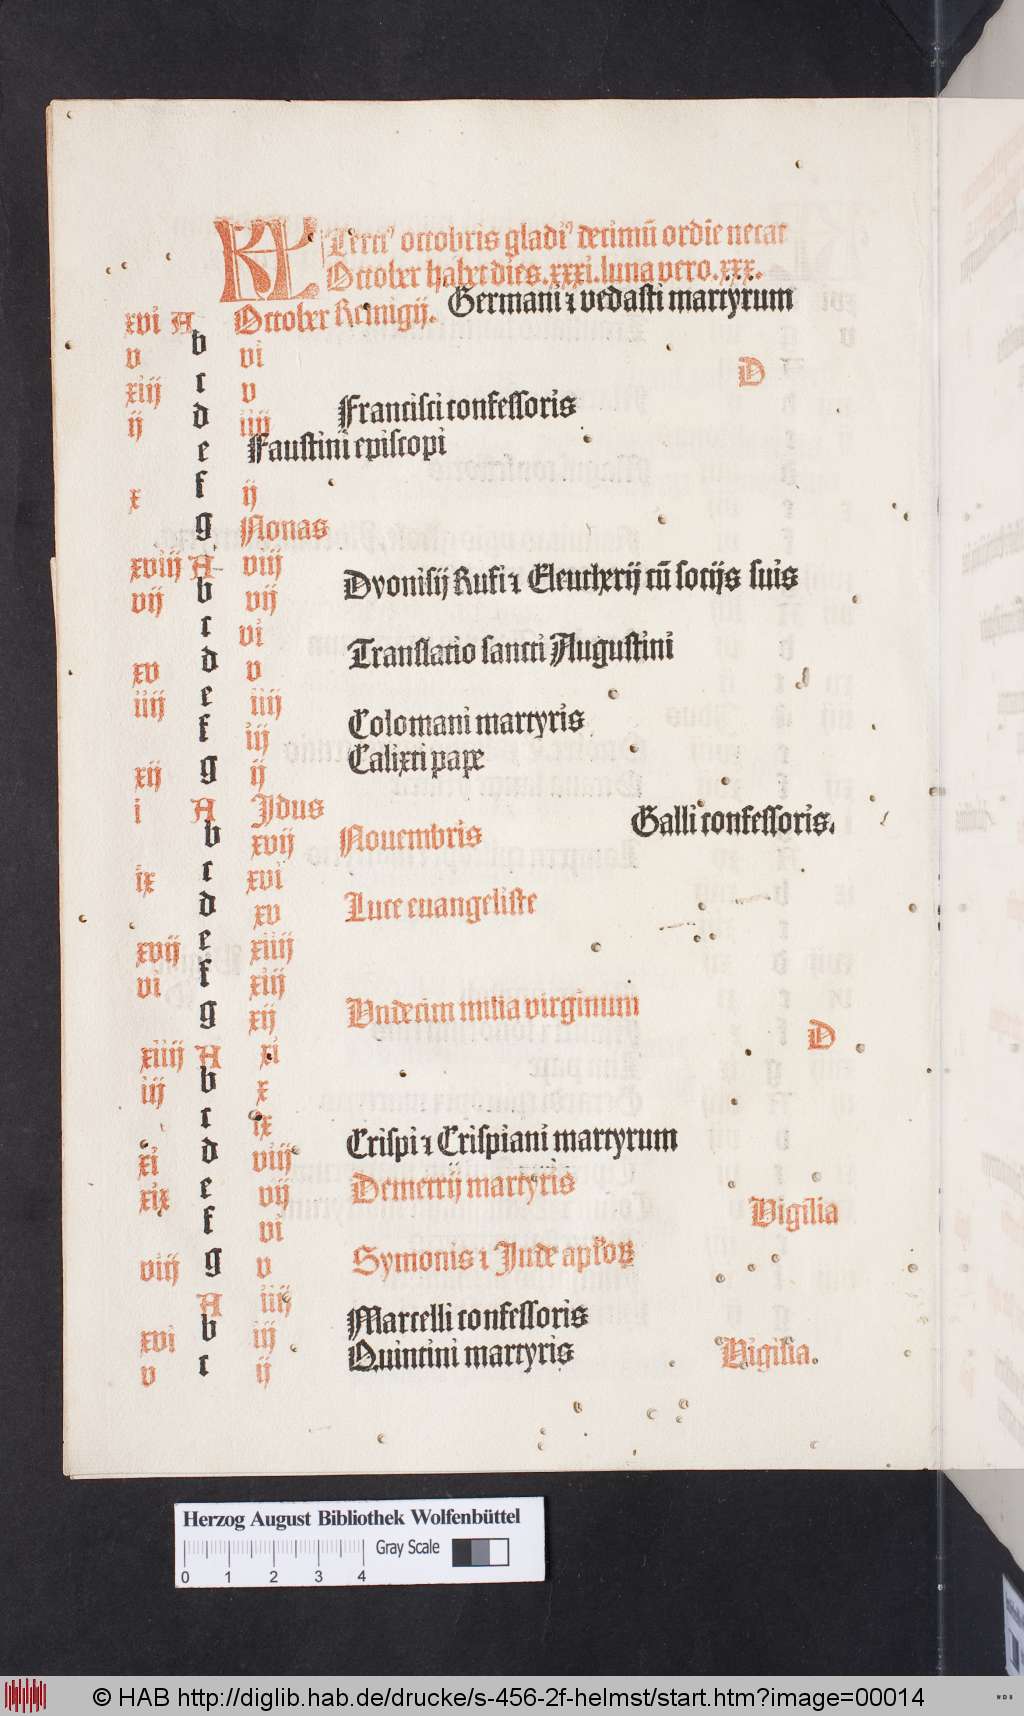 KL Terci⁹ octobris gladi⁹ decimū ordīe necat
October habet dies .xxxi. luna vero .xxx.
xvi A October Remigij. Germani ⁊ vedasti martyrum
v b vi
xiij c v D
ij d iiij Francisci confessoris
e Faustini episcopi
x f ij
g Nonas
xviij A viij
vij b vij Dyonisij Rufi ⁊ Eleutherij cū socijs suis
c vi
xv d v Translatio sancti Augustini
iiij e iiij
f iij Colomani martyris
xij g ij Calixti pape
i A Jdus
b xvij Nouembris Galli confessoris.
ix c xvi
d xv Luce euangeliste
xvij e xiiij
vi f xiij
g xij Vndecim milia virginum
xiiij A xi D
iij b x
c ix
xi d viij Crispi ⁊ Crispiani martyrum
xix e vij Demetrij martyris
f vi Vigilia
viij g v Symonis ⁊ Jude apl'oꝝ
A iiij
xvi b iij Marcelli confessoris
v c ij Quintini martyris Vigilia.
Herzog August Bibliothek Wolfenbüttel
Gray Scale
0 1 2 3 4
© HAB http://diglib.hab.de/drucke/s-456-2f-helmst/start.htm?image=00014